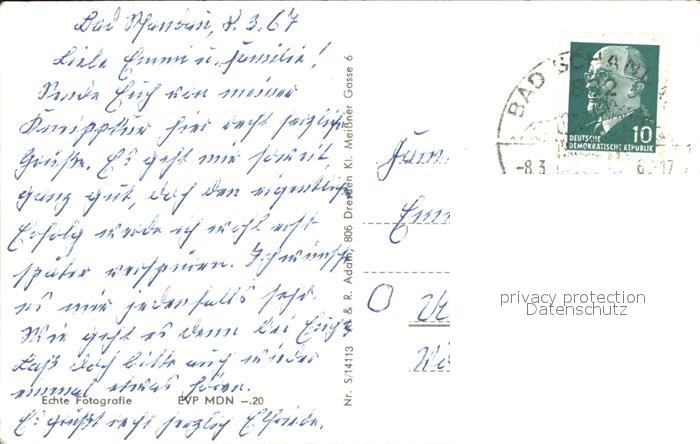 Bad Schandau, 8.3.67
Liebe Emmi u. Familie!
Sende Euch von meiner
Kneippkur hier recht herzliche
Grüße. Es geht mir soweit
ganz gut, doch den eigentlichen
Erfolg werde ich wohl erst
später verspüren. Ich wünsche
es mir jedenfalls sehr.
Wie geht es denn bei Euch?
Laßt doch bitte auch wieder
einmal etwas hören.
Echte Fotografie EVP MDN –.20
Es grüßt recht herzlich
Nr. S/14113 A. & R. Adam, 806 Dresden Kl. Meißner Gasse 6
Fam.
Emm
BAD SCHANDA
-8.3
10
DEUTSCHE
DEMOKRATISCHE REPUBLIK
privacy protection
Datenschutz